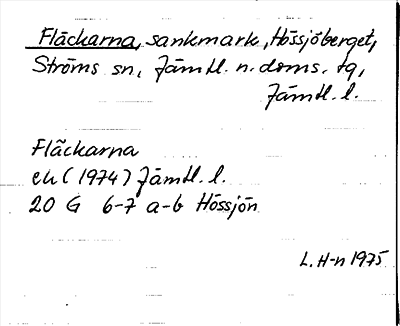 Fläckarna, sankmark, Hössjöberget,
Ströms sn, Jämtl. n. doms. tg,
Jämtl. l.
Fläckarna
ek (1974) Jämtl. l.
20 G 6-7 a-b Hössjön
L. H-n 1975